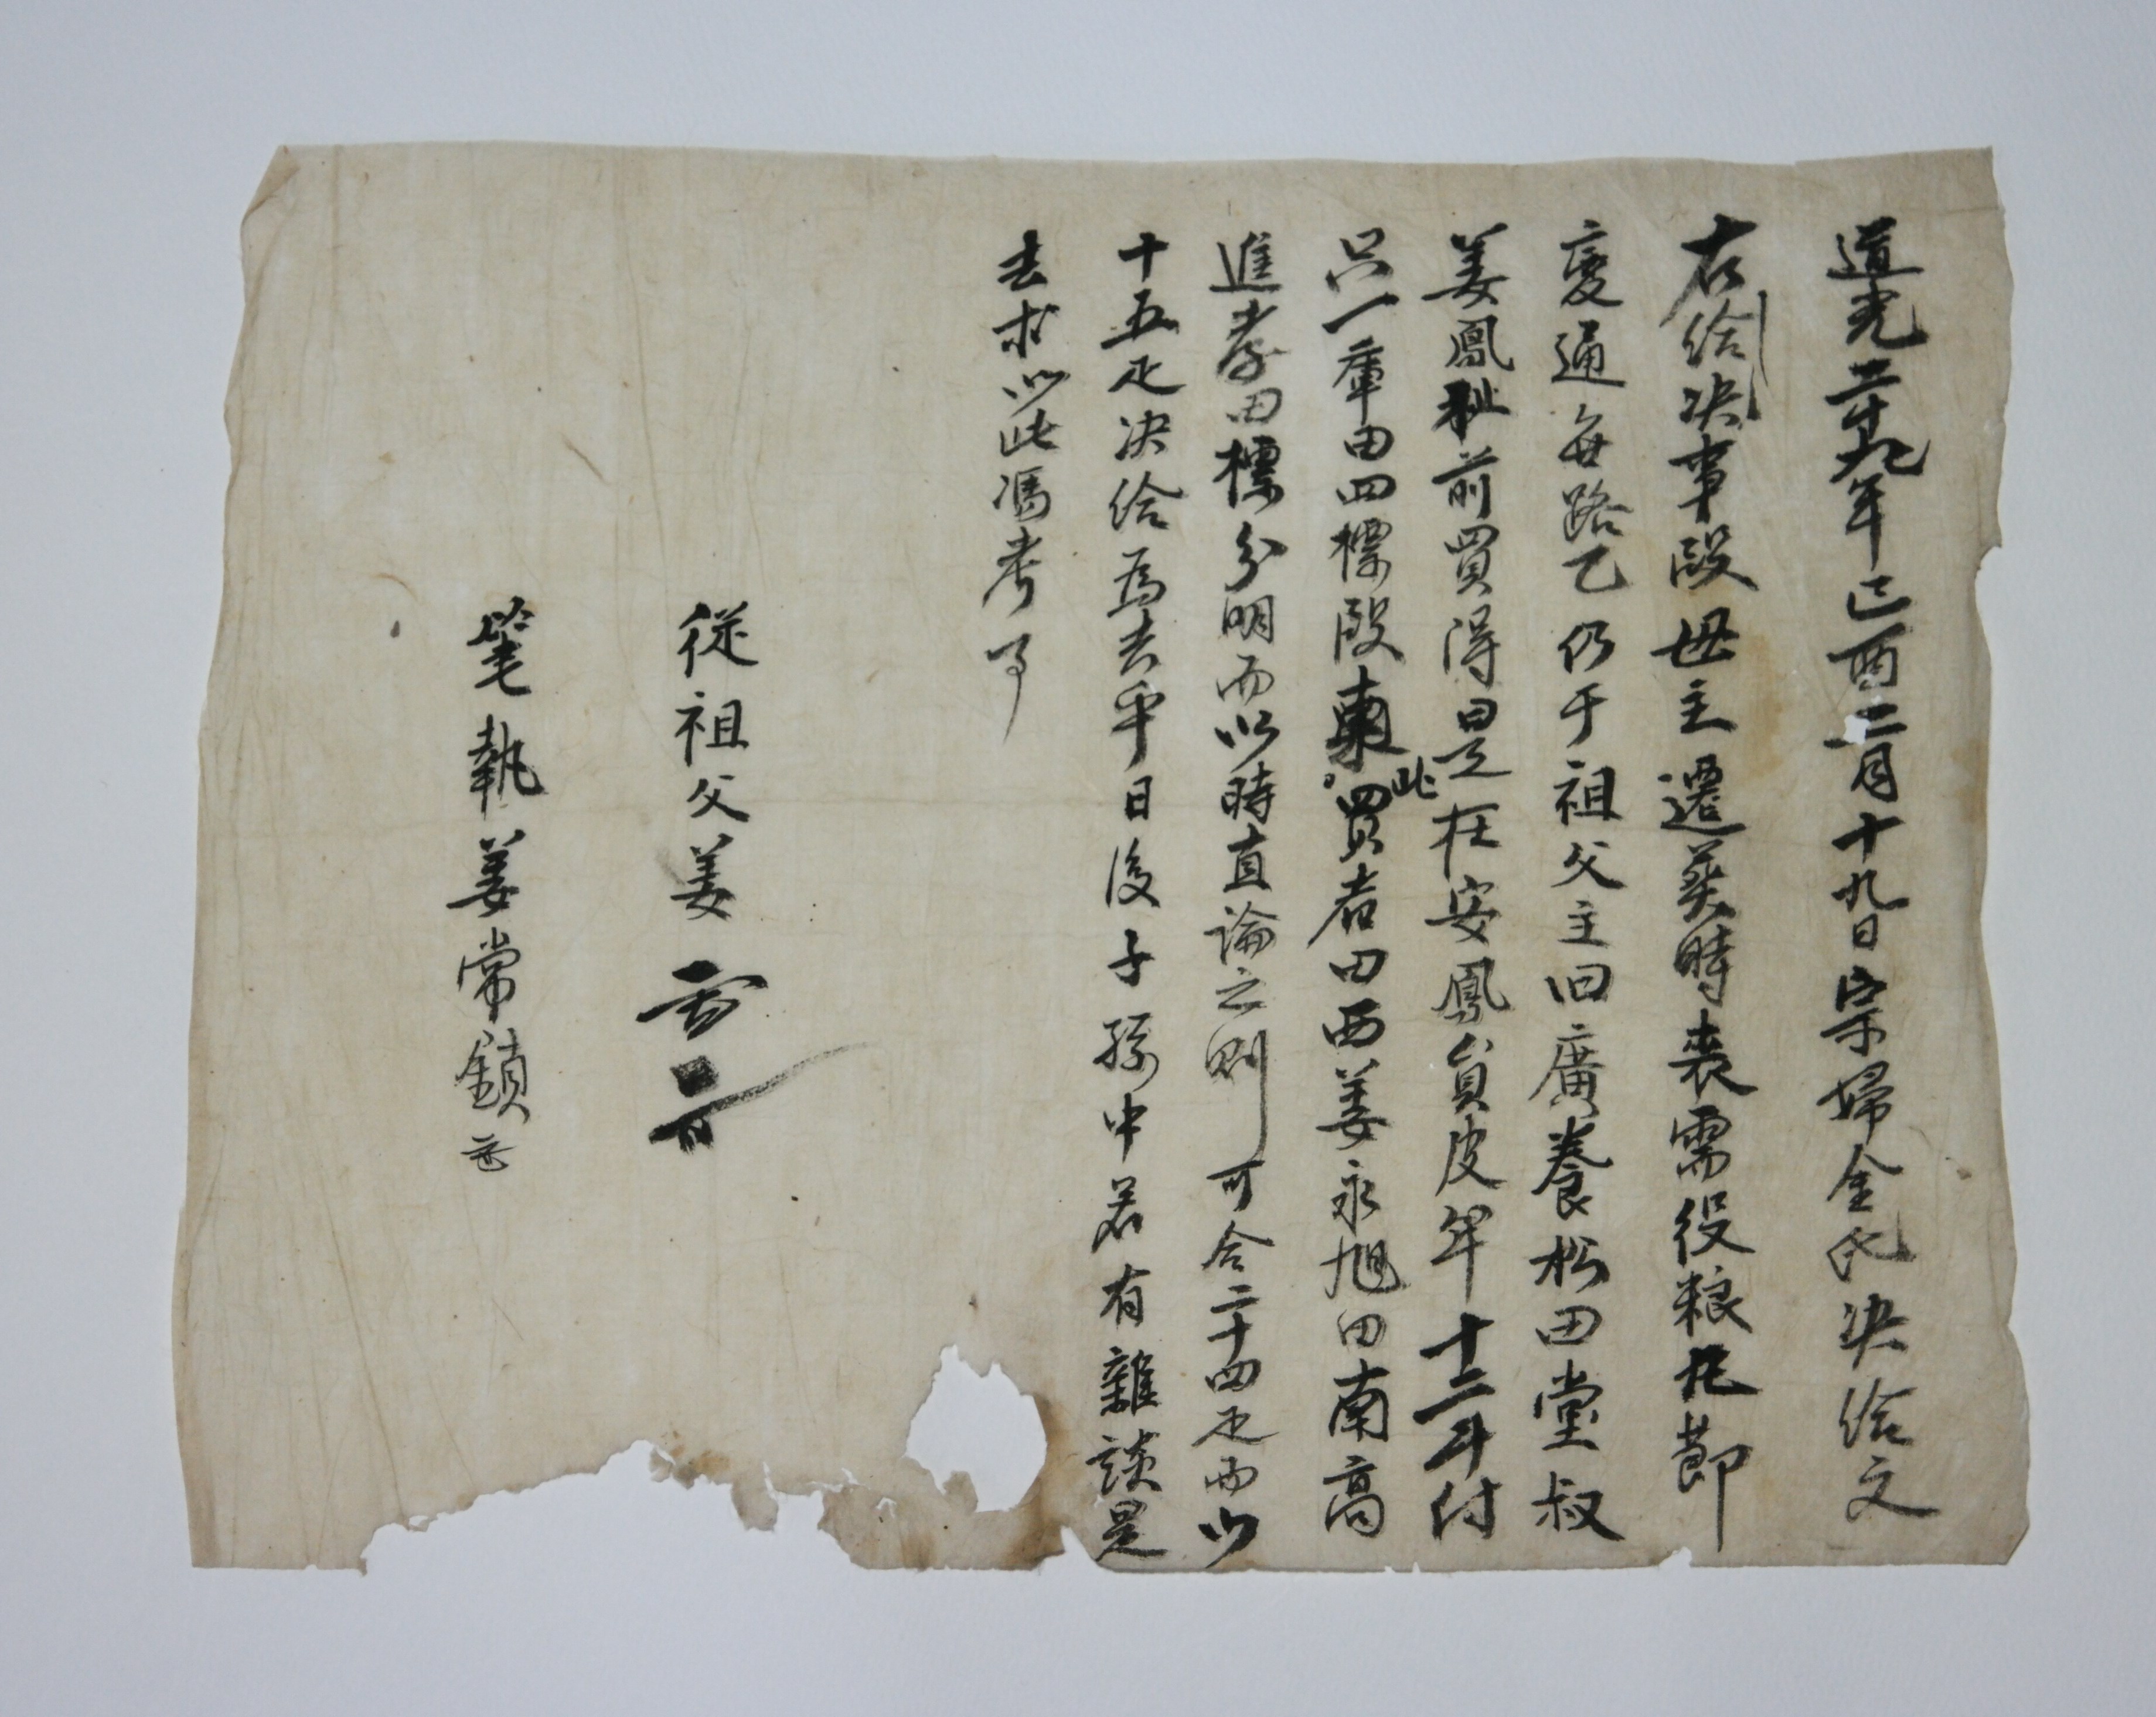 道光二十九年己酉二月十九日宗婦金氏決給文
右給決事段母主遷葬時喪需役粮凡節
變通無路乙仍于祖父主旧廣養松田堂叔
姜鳳祉前買得是在安鳳員皮牟十二斗付
只一庫田四標段東此買者田西姜永旭田南高
進孝田標分明而以時直論之則可合二十四疋而以
十五疋決給為去乎日後子孫中若有雜談是
去等以此憑考事
從祖父姜
筆執姜常鎮